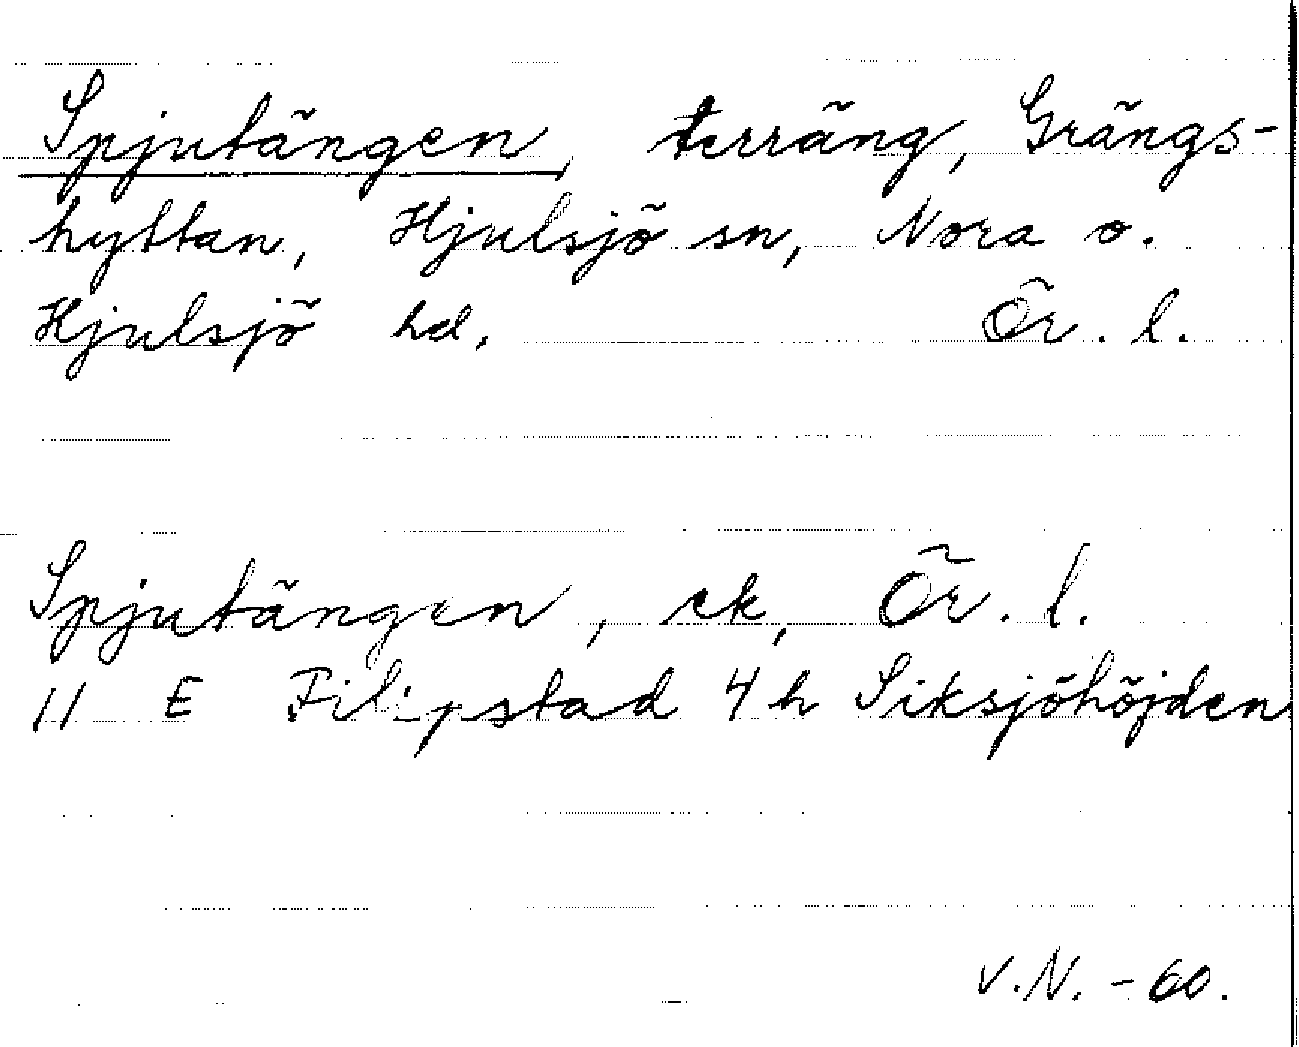 Spjutängen, terräng, Grängs-
hyttan, Hjulsjö sn, Nora o.
Hjulsjö hd. Ör. l.
Spjutängen, ek, Ör. l.
11 E Filipstad 4 h Siksjöhöjden
V.N. -60.